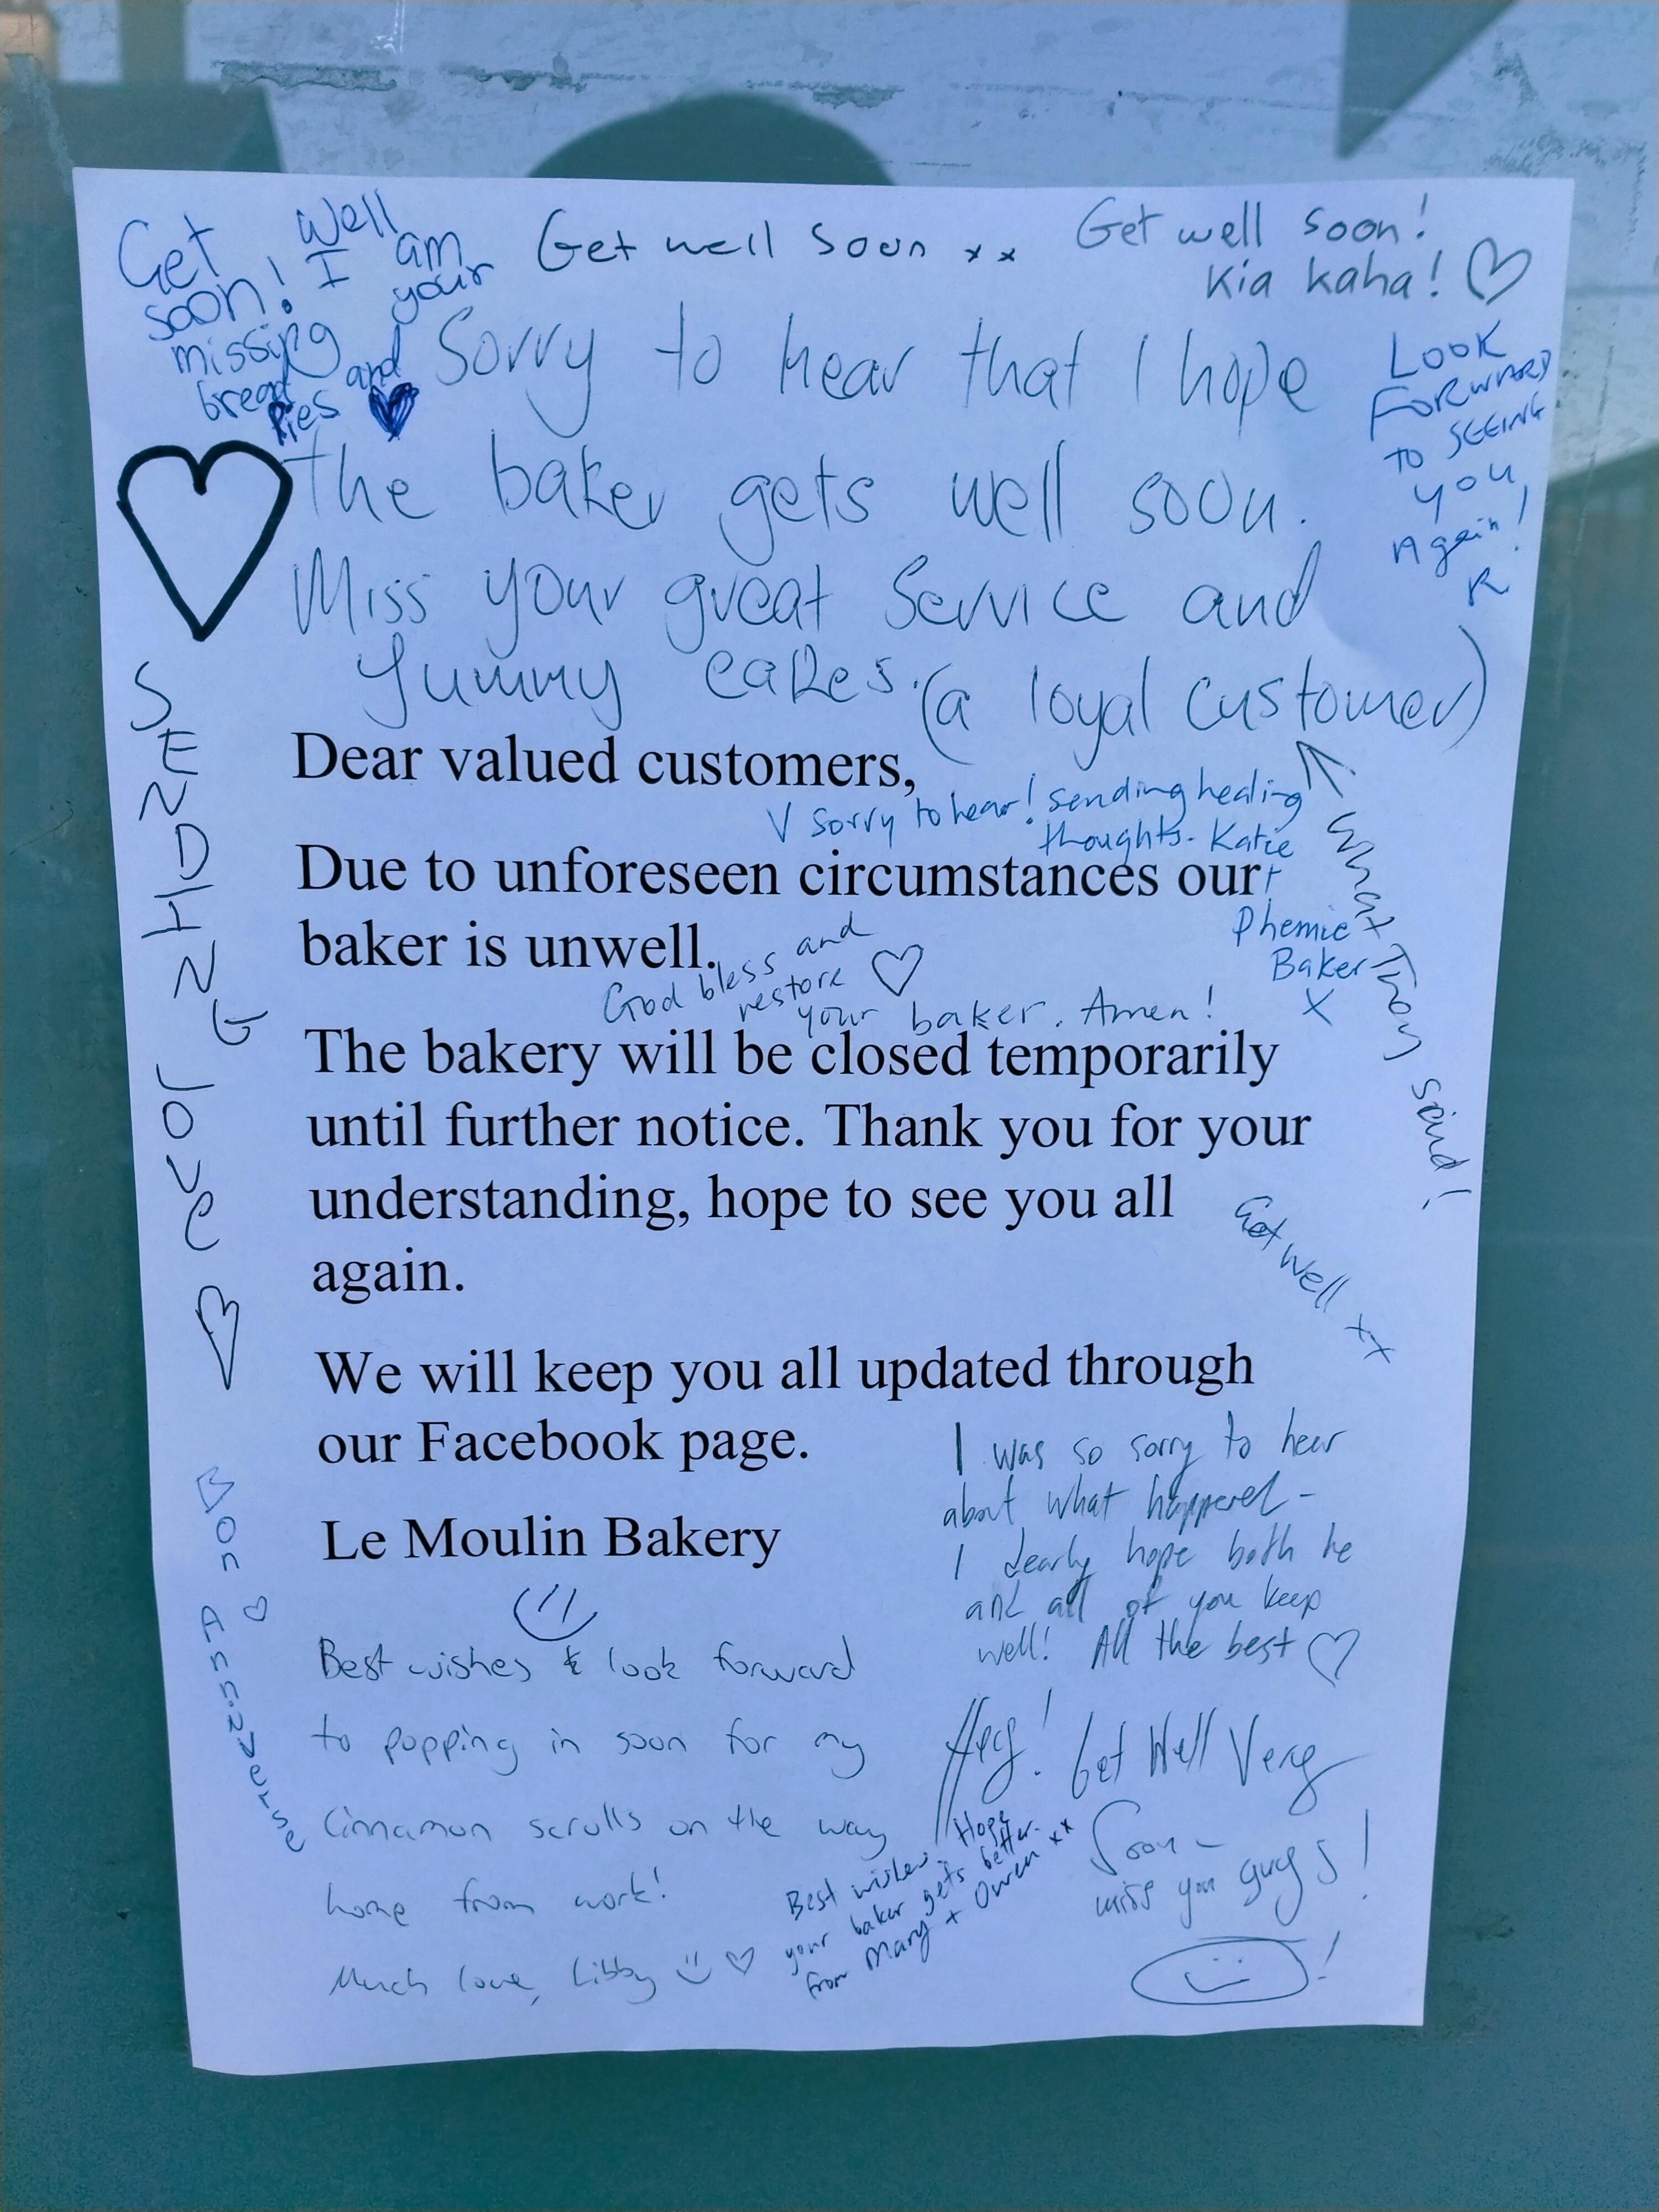 Get well
soon! I am
missing your
bread and
Pies
Get well soon xx
Get well soon!
Kia kaha!
Sorry to hear that I hope
the baker gets well soon.
Miss your great Service and
yummy cakes. (a loyal customer)
LOOK
FORWARD
TO SEEING
you
Again!
R
SENDING love
Dear valued customers,
V sorry to hear! sending healing
thoughts. Katie
+
Phemie
Baker
X
what they said!
Due to unforeseen circumstances our
baker is unwell.
God bless and
restore
your baker. Amen!
The bakery will be closed temporarily
until further notice. Thank you for your
understanding, hope to see you all
again.
Get well xx
We will keep you all updated through
our Facebook page.
Le Moulin Bakery
I was so sorry to hear
about what happened -
I dearly hope both he
and all of you keep
well! All the best
Bon
Best wishes & look forward
to popping in soon for my
Cinnamon scrolls on the way
home from work!
Much love, Libby
Best wishes. Hope
your baker gets better.
from Mary + Owen xx
Hey! Get Well Very
Soon -
miss you guys!
!